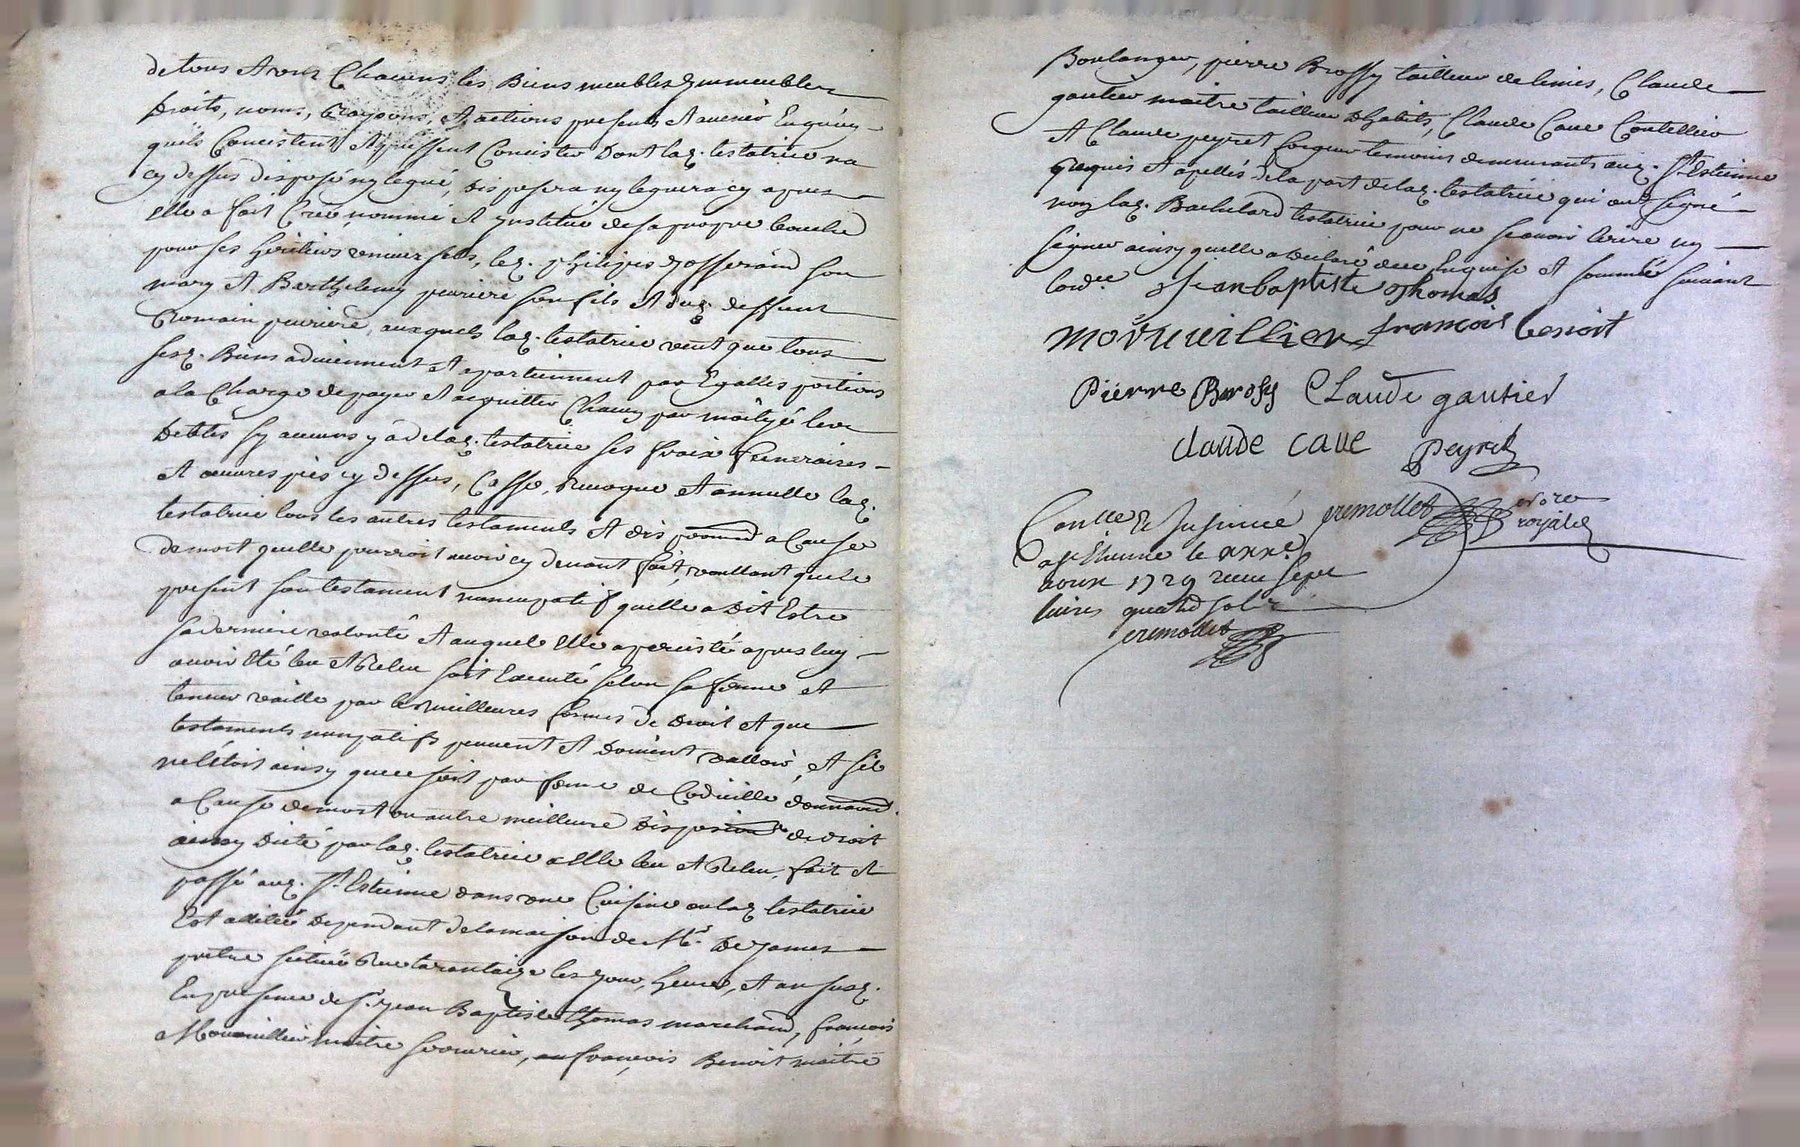 de tous et uns Chacuns les Biens meubles ymmeubles
droits, noms, Raysons, et actions presents et avenir En quoy
quils Concistent et puissent Concister dont lad. testatrice na
cy dessus disposé ny legué, disposera ny leguera cy apres
Elle a fait Creé, nommé et ynstitué de sa propre bouche
pour ses heritiers universels, led. philipes josserand son
mary et Berthelemy perriere son fils et dud. deffunt
Romain perriere, auxquels lad. testatrice veut que tous
sesd. Biens adviennent et apartiennent par Egalles portions
a la Charge de payer et acquitter Chacun par moityé les
debtes sy aucuns y a de lad. testatrice ses fraix funeraires
et oeuvres pies cy dessus, Casse, revoque et annulle lad.
testatrice tous les autres testaments et dis a Cause
de mort quelle pourroit avoir cy devant fait, voullant que le
present son testament nuncupatif quelle a dit Estre
sa derniere volonté et auquel Elle a percisté apres luy
avoir Eté leu et Releu soit Executé selon sa forme et
teneur vaille par les meilleures formes de droit et que
testaments nunpatifs peuvent et doivent valloir, et sil
ne létoit ainsy que ce soit par forme de Codicille donnaon
a Cause de mort ou autre meilleure disposion de droit
ainsy dicté par lad. testatrice a Elle leu et Releu, fait et
passé aud. St. Estienne dans une Cuisine ou lad. testatrice
Est allitéé dependant de la maison de Mr. De james
pretre scituéé Rue tarantaize les jour, heure, et an susd.
En presence de Sr. jean Baptiste thomas marchand, françois
Mouvuillier maitre serrurier, françois Benoit maitre
Boulanger, pierre Brossy tailleur de limes, Claude
gautier maitre tailleur dhabits, Claude Cave Coutellier
et Claude peyret forgeur temoins demeurants aud. St. Estienne
Requis et apellés de la part de lad. testatrice qui ont signé
non lad. Bachelard testatrice pour ne scavoir Ecrire ny
signer ainsy quelle a declaré deue Enquise et sommée suivant
lordce Jean baptiste thomas
mouvuillier françois benoit
pierre Brossy Claude gautier
claude cave peyret
Conllé et Insinué cremollet nore
a St Etienne le xxxe royal
aoux 1729 receu sept
livres quatre sols
cremollet